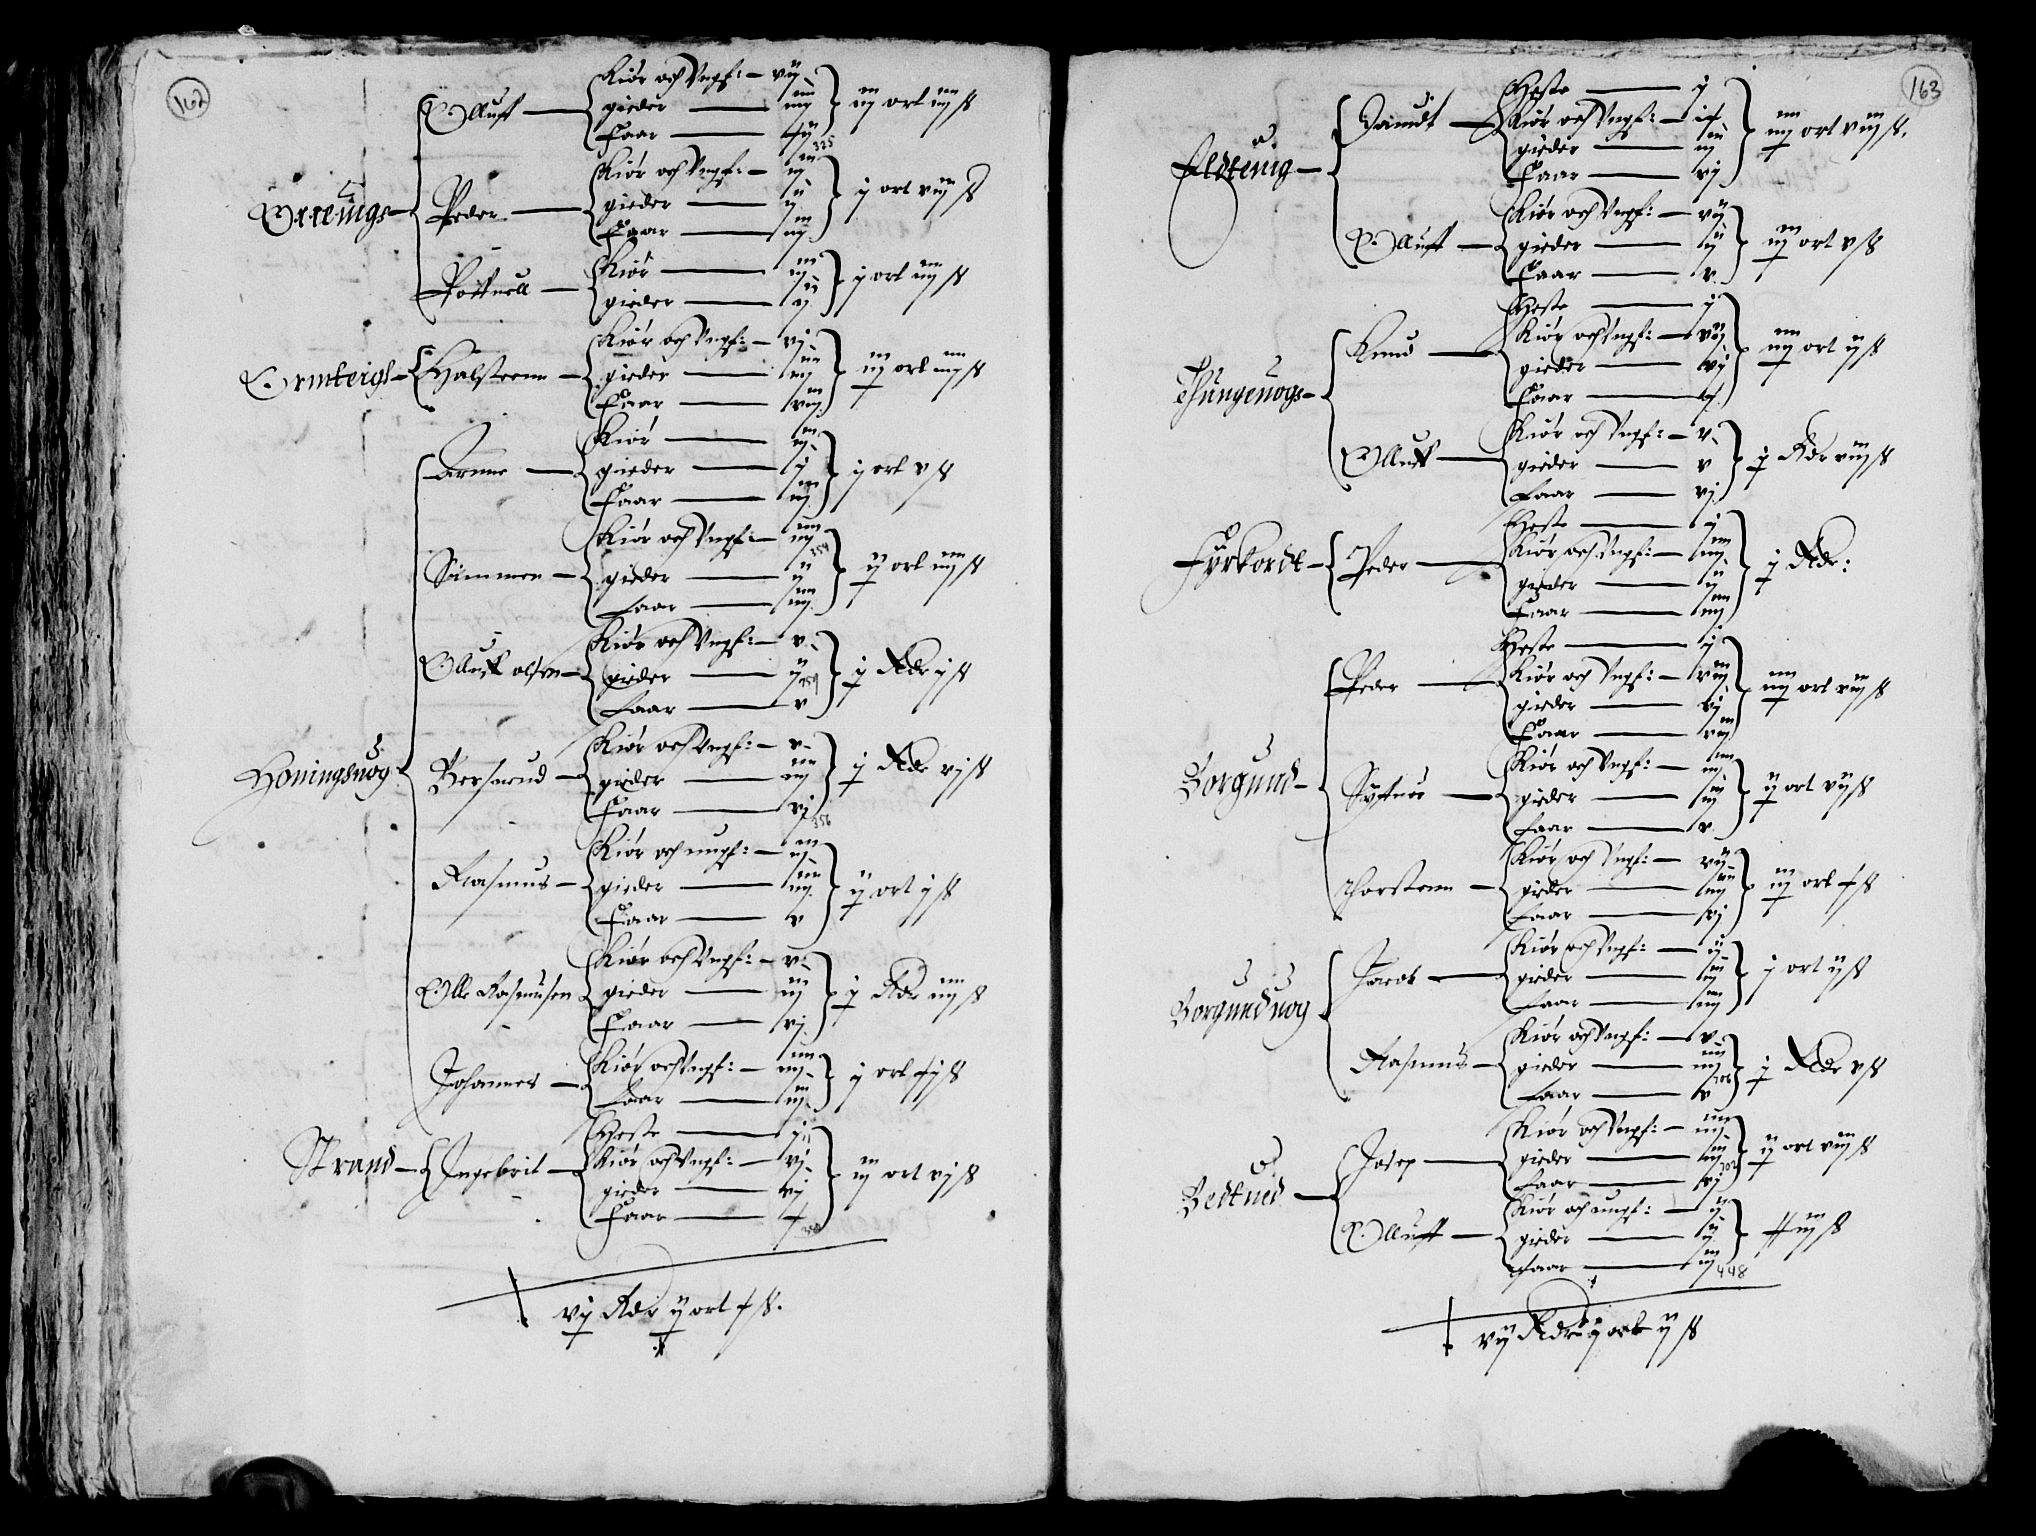 162
Olluff — Kiør och Ungf: — vij
gieder — iiij
Faar — xij
iij ort iiij ß
325
Øxteuigs — Peder — Kiør och Ungf: — iij
gieder — ij
Faar — iij
j ort viij ß
Pottuell — Kiør — iij
gieder — ij
j ort iiij ß
Ormteigs — Halsteenn — Kiør och Ungf: — vj
gieder — iiij
Faar — viij
iij ort iiij ß
Honingsuog
Arnne — Kiør — iij
gieder — j
Faar — iij
j ort v ß
Simmen — Kiør och Ungf: — iiij
gieder — ij
Faar — iiij
ij ort iiij ß
Olluff olsen — Kiør och Ungf: — v
gieder — ij
Faar — v
j Rdr j ß
Bersuend — Kiør och Ungf: — v
gieder — iiij
Faar — vj
j Rdr vj ß
356
Rasmus — Kiør och ungf: — iij
gieder — iiij
Faar — v
ij ort j ß
Olle Rasmusen — Kiør och Ungf: — v
gieder — iij
Faar — vj
j Rdr iiij ß
Johannes — Kiør och Ungf: — iiij
Faar — iij
j ort xj ß
Strand — Ingebrit — Heste — j
Kiør och Ungf: — vj
gieder — vj
Faar — x
iij ort vj ß
vij Rdr ij ort x ß.
163
Eldteuig — Heste — j
Kiør och Ungf: — ix
gieder — iij
Faar — vj
iiij ort viij ß.
Olluff — Kiør och Ungf: — vij
gieder — ij
Faar — v
iij ort v ß
Thungeuogs — Knud — Heste — j
Kiør och Ungf: — vij
gieder — vj
Faar — x
iiij ort ij ß
Olluff — Kiør och Ungf: — v
gieder — v
Faar — vj
j Rdr viij ß
Fyrkordt — Peder — Heste — j
Kiør och Ungf: — iiij
gieder — ij
Faar — iiij
j Rdr:
Borgund — Peder — Heste — j
Kiør och Ungf: — viij
gieder — vj
Faar — viij
iiij ort viij ß
Siffuer — Kiør och Ungf: — iiij
gieder — iij
Faar — v
ij ort vij ß
Thorsteenn — Kiør och Ungf: — vij
gieder — iiij
Faar — vj
iij ort x ß
Borgunduog — Jacob — Kiør och Ungf: — ij
gieder — iij
Faar — iiij
j ort ij ß
Rasmus — Kiør och Ungf: — v
gieder — iiij
Faar — v
j Rdr v ß
Josep — Kiør och Ungf: — iiij
gieder — iij
Faar — vj
ij ort viij ß
Olluff — Kiør och ungf: — ij
gieder — ij
Faar — iij
448
vij Rdr j ort ij ß